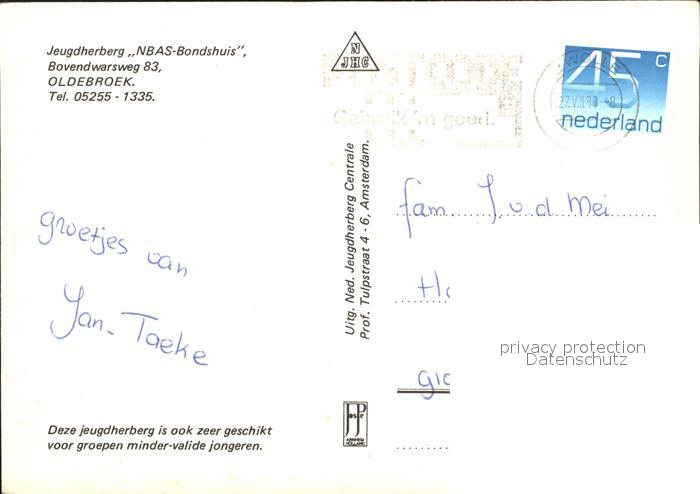 Jeugdherberg „NBAS-Bondshuis”,
Bovendwarsweg 83,
OLDEBROEK.
Tel. 05255 - 1335.
N
JHC
POSTCODE
Gebruik 'm goed.
45 c
nederland
groetjes van
Jan-Taeke
Uitg. Ned. Jeugdherberg Centrale
Prof. Tulpstraat 4 - 6, Amsterdam.
fam J v d Mei
privacy protection
Datenschutz
Deze jeugdherberg is ook zeer geschikt
voor groepen minder-valide jongeren.
ARNHEM
HOLLAND